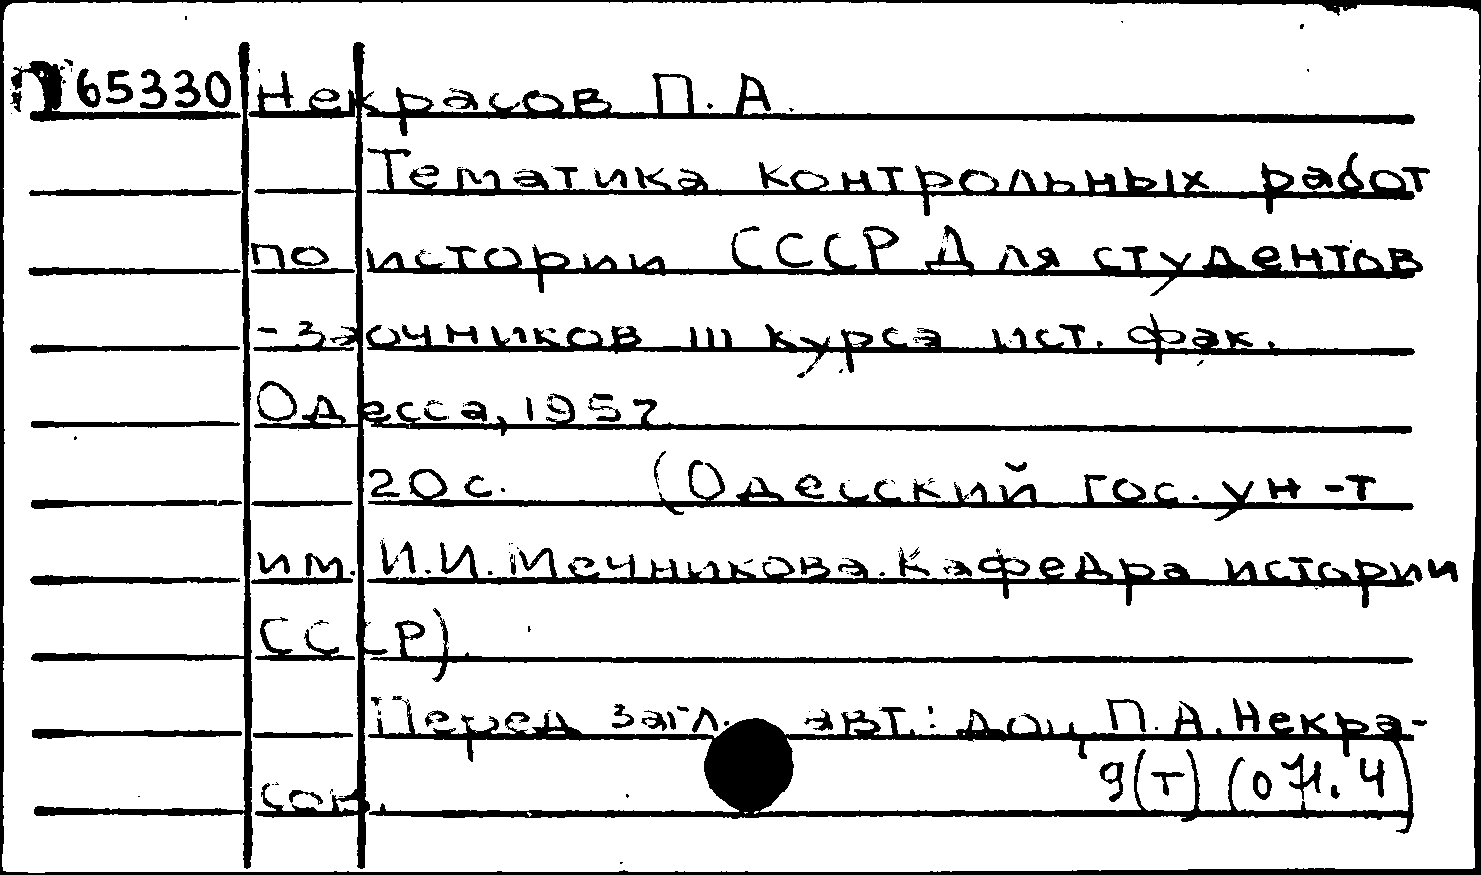 П65330 Некрасов П.А.
Тематика контрольных работ
по истории СССР Для студентов
-заочников III курса ист. фак.
Одесса, 1957
20 с. (Одесский гос. ун-т
им. И.И. Мечникова. Кафедра истории
СССР).
Перед загл. авт.: доц. П.А. Некра-
сов.
9(Т) (071.4)